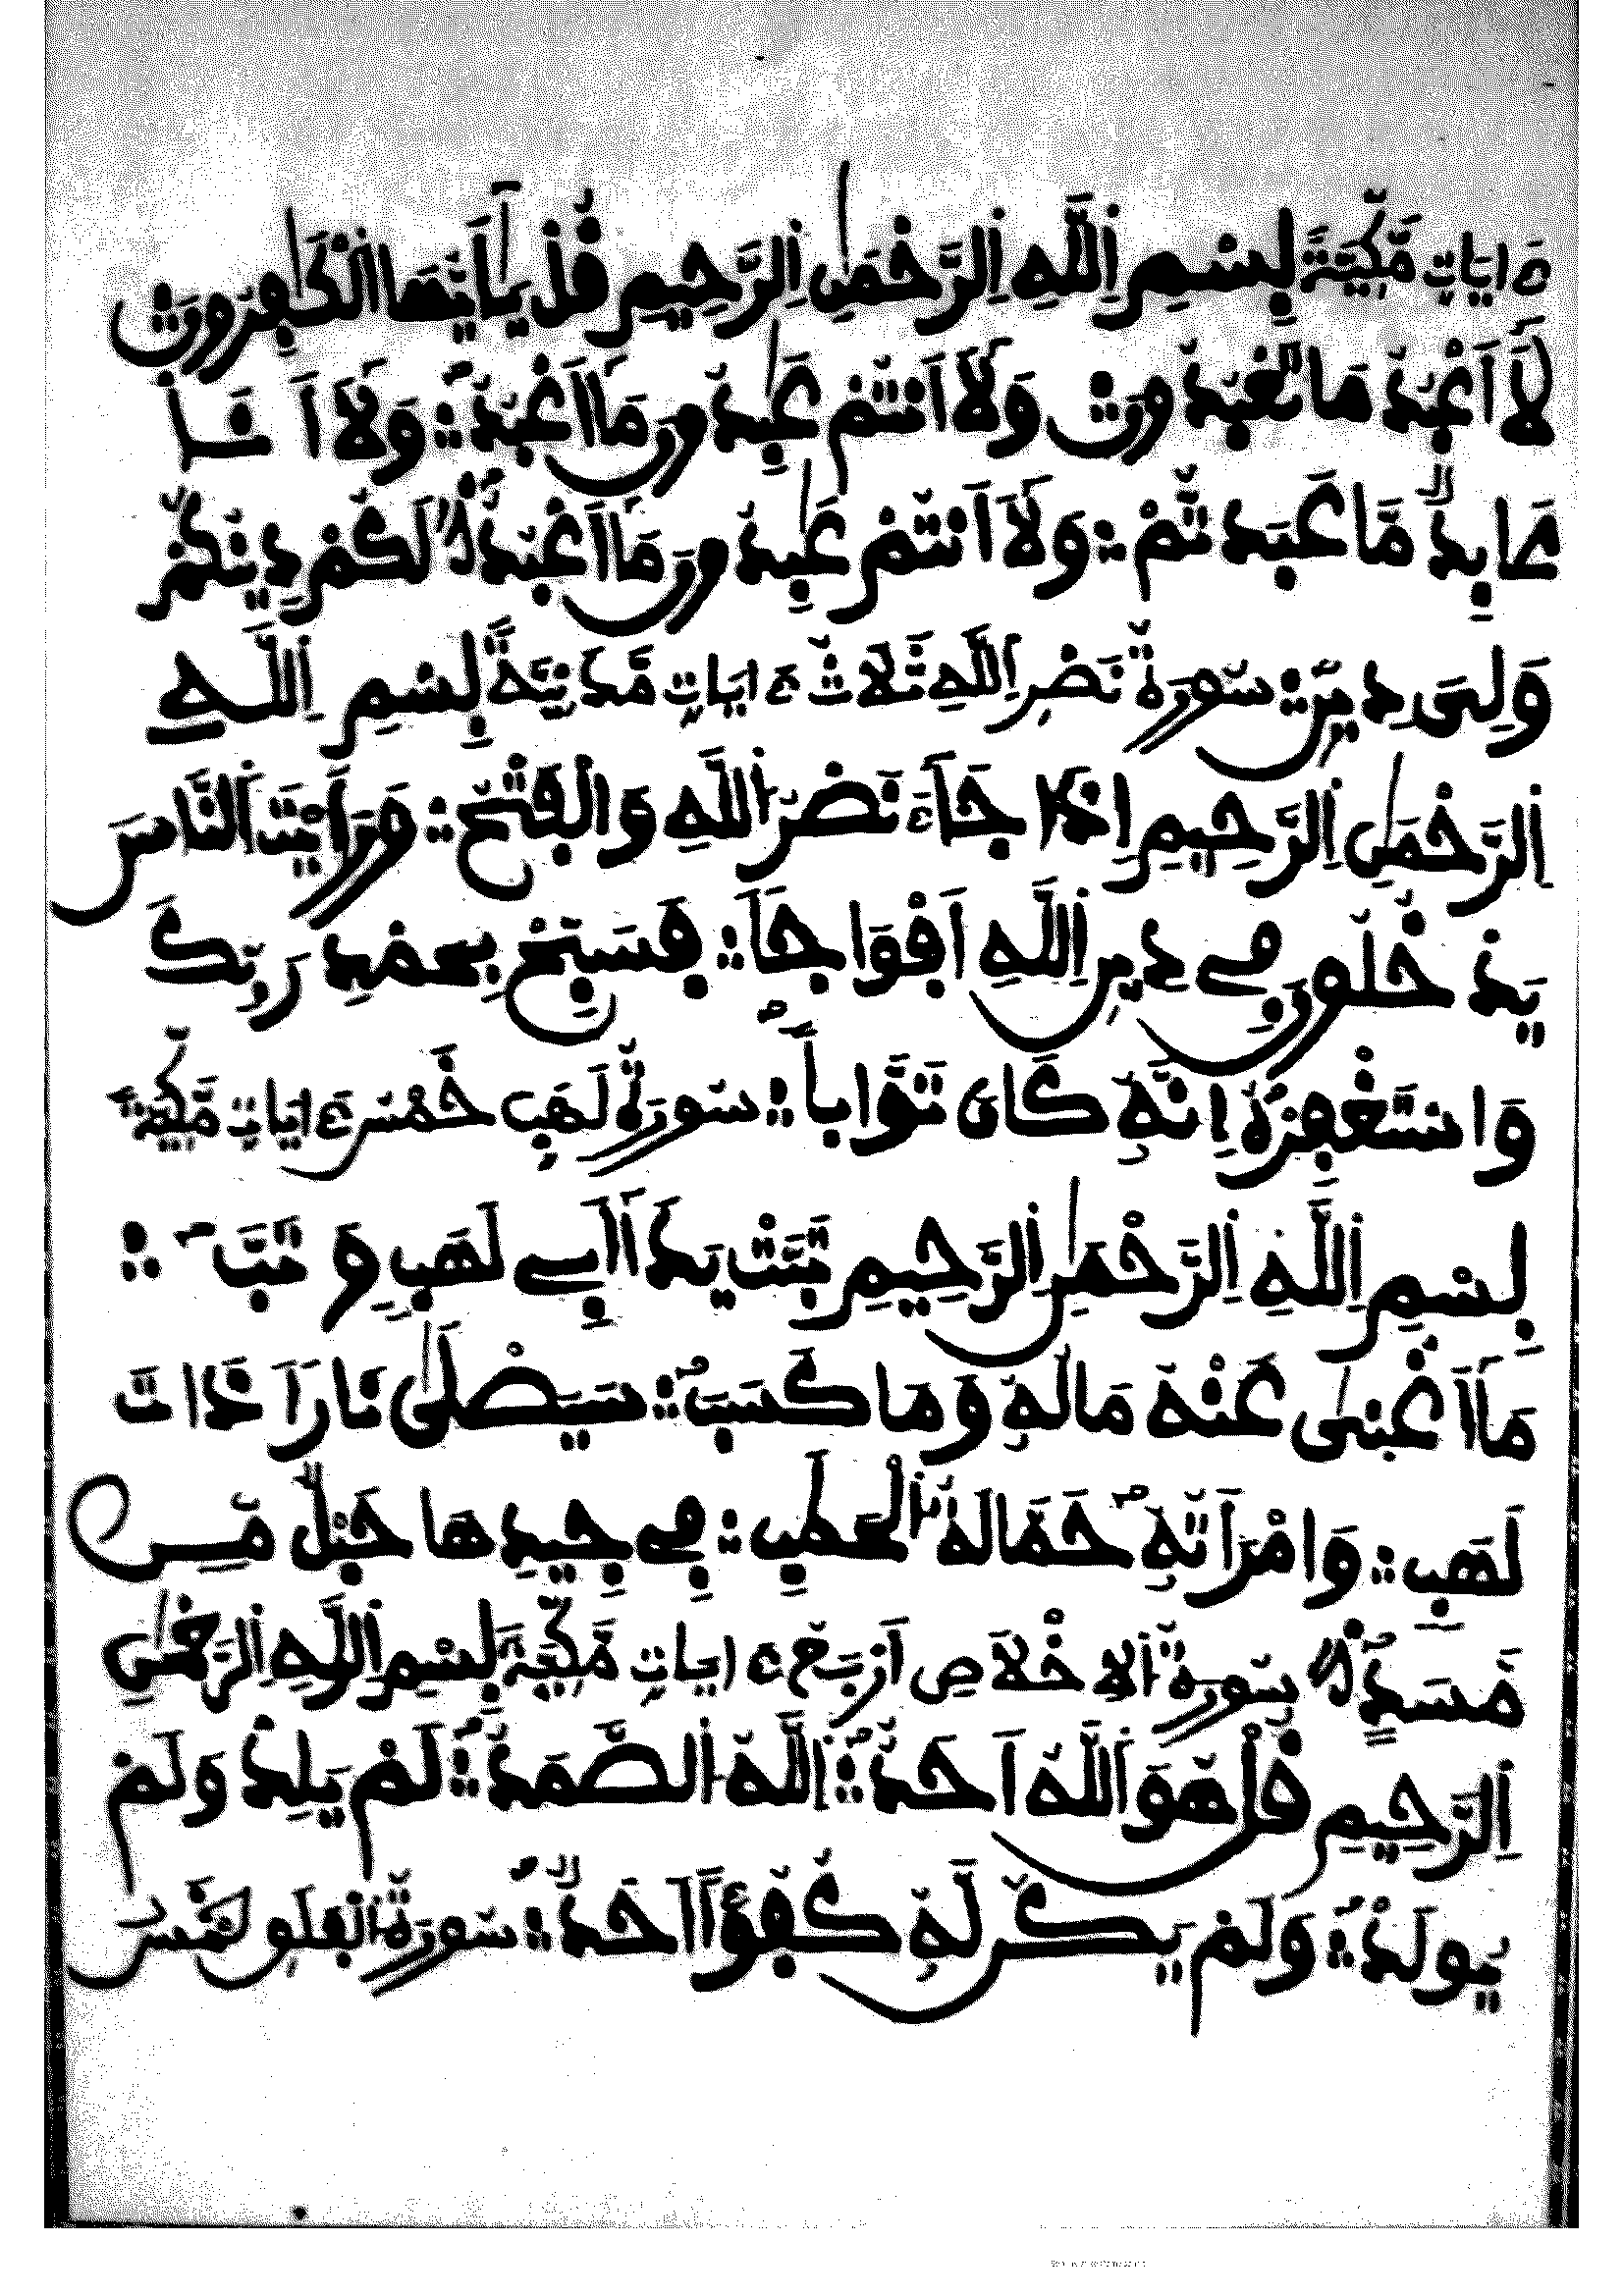 ءايات مَّكِّيَّةٌ بِسْمِ اِ۬للَّهِ اِ۬لرَّحْمَٰنِ اِ۬لرَّحِيمِ قُلْ يَٰٓأَيُّهَا اَ۬لْكَٰفِرُونَ
لَآ أَعْبُدُ مَا تَعْبُدُونَ وَلَآ أَنتُمْ عَٰبِدُونَ مَآ أَعْبُدُ وَلَآ أَنَا
عَابِدٌ مَّا عَبَدتُّمْ وَلَآ أَنتُمْ عَٰبِدُونَ مَآ أَعْبُدُ لَكُمْ دِينُكُمْ
وَلِىَ دِينِ سورة نصر الله ثلاث ءايات مَّدَنِيَّةٌ بِسْمِ اِ۬للَّهِ
اِ۬لرَّحْمَٰنِ اِ۬لرَّحِيمِ إِذَا جَآءَ نَصْرُ اُ۬للَّهِ وَالْفَتْحُ وَرَأَيْتَ اَ۬لنَّاسَ
يَدْخُلُونَ فِے دِينِ اِ۬للَّهِ أَفْوَاجاً فَسَبِّحْ بِحَمْدِ رَبِّكَ
وَاسْتَغْفِرْهُ إِنَّهُۥ كَانَ تَوَّاباً سورة لهب خمس ءايات مَّكِّيَّةٌ
بِسْمِ اِ۬للَّهِ اِ۬لرَّحْمَٰنِ اِ۬لرَّحِيمِ تَبَّتْ يَدَآ أَبِے لَهَبٍ وَتَبَّ
مَآ أَغْنَىٰ عَنْهُ مَالُهُۥ وَمَا كَسَبَ سَيَصْلَىٰ نَاراً ذَاتَ
لَهَبٍ وَامْرَأَتُهُۥ حَمَّالَةُ اُ۬لْحَطَبِ فِے جِيدِهَا حَبْلٌ مِّن
مَّسَدٍ سورة الاخلاص أربع ءايات مَّكِّيَّةٌ بِسْمِ اِ۬للَّهِ اِ۬لرَّحْمَٰنِ
اِ۬لرَّحِيمِ قُلْ هُوَ اَ۬للَّهُ أَحَدٌ اِ۬للَّهُ اُ۬لصَّمَدُ لَمْ يَلِدْ وَلَمْ
يُولَدْ وَلَمْ يَكُن لَّهُۥ كُفُؤاً أَحَدٌ سورة الفلق خمس